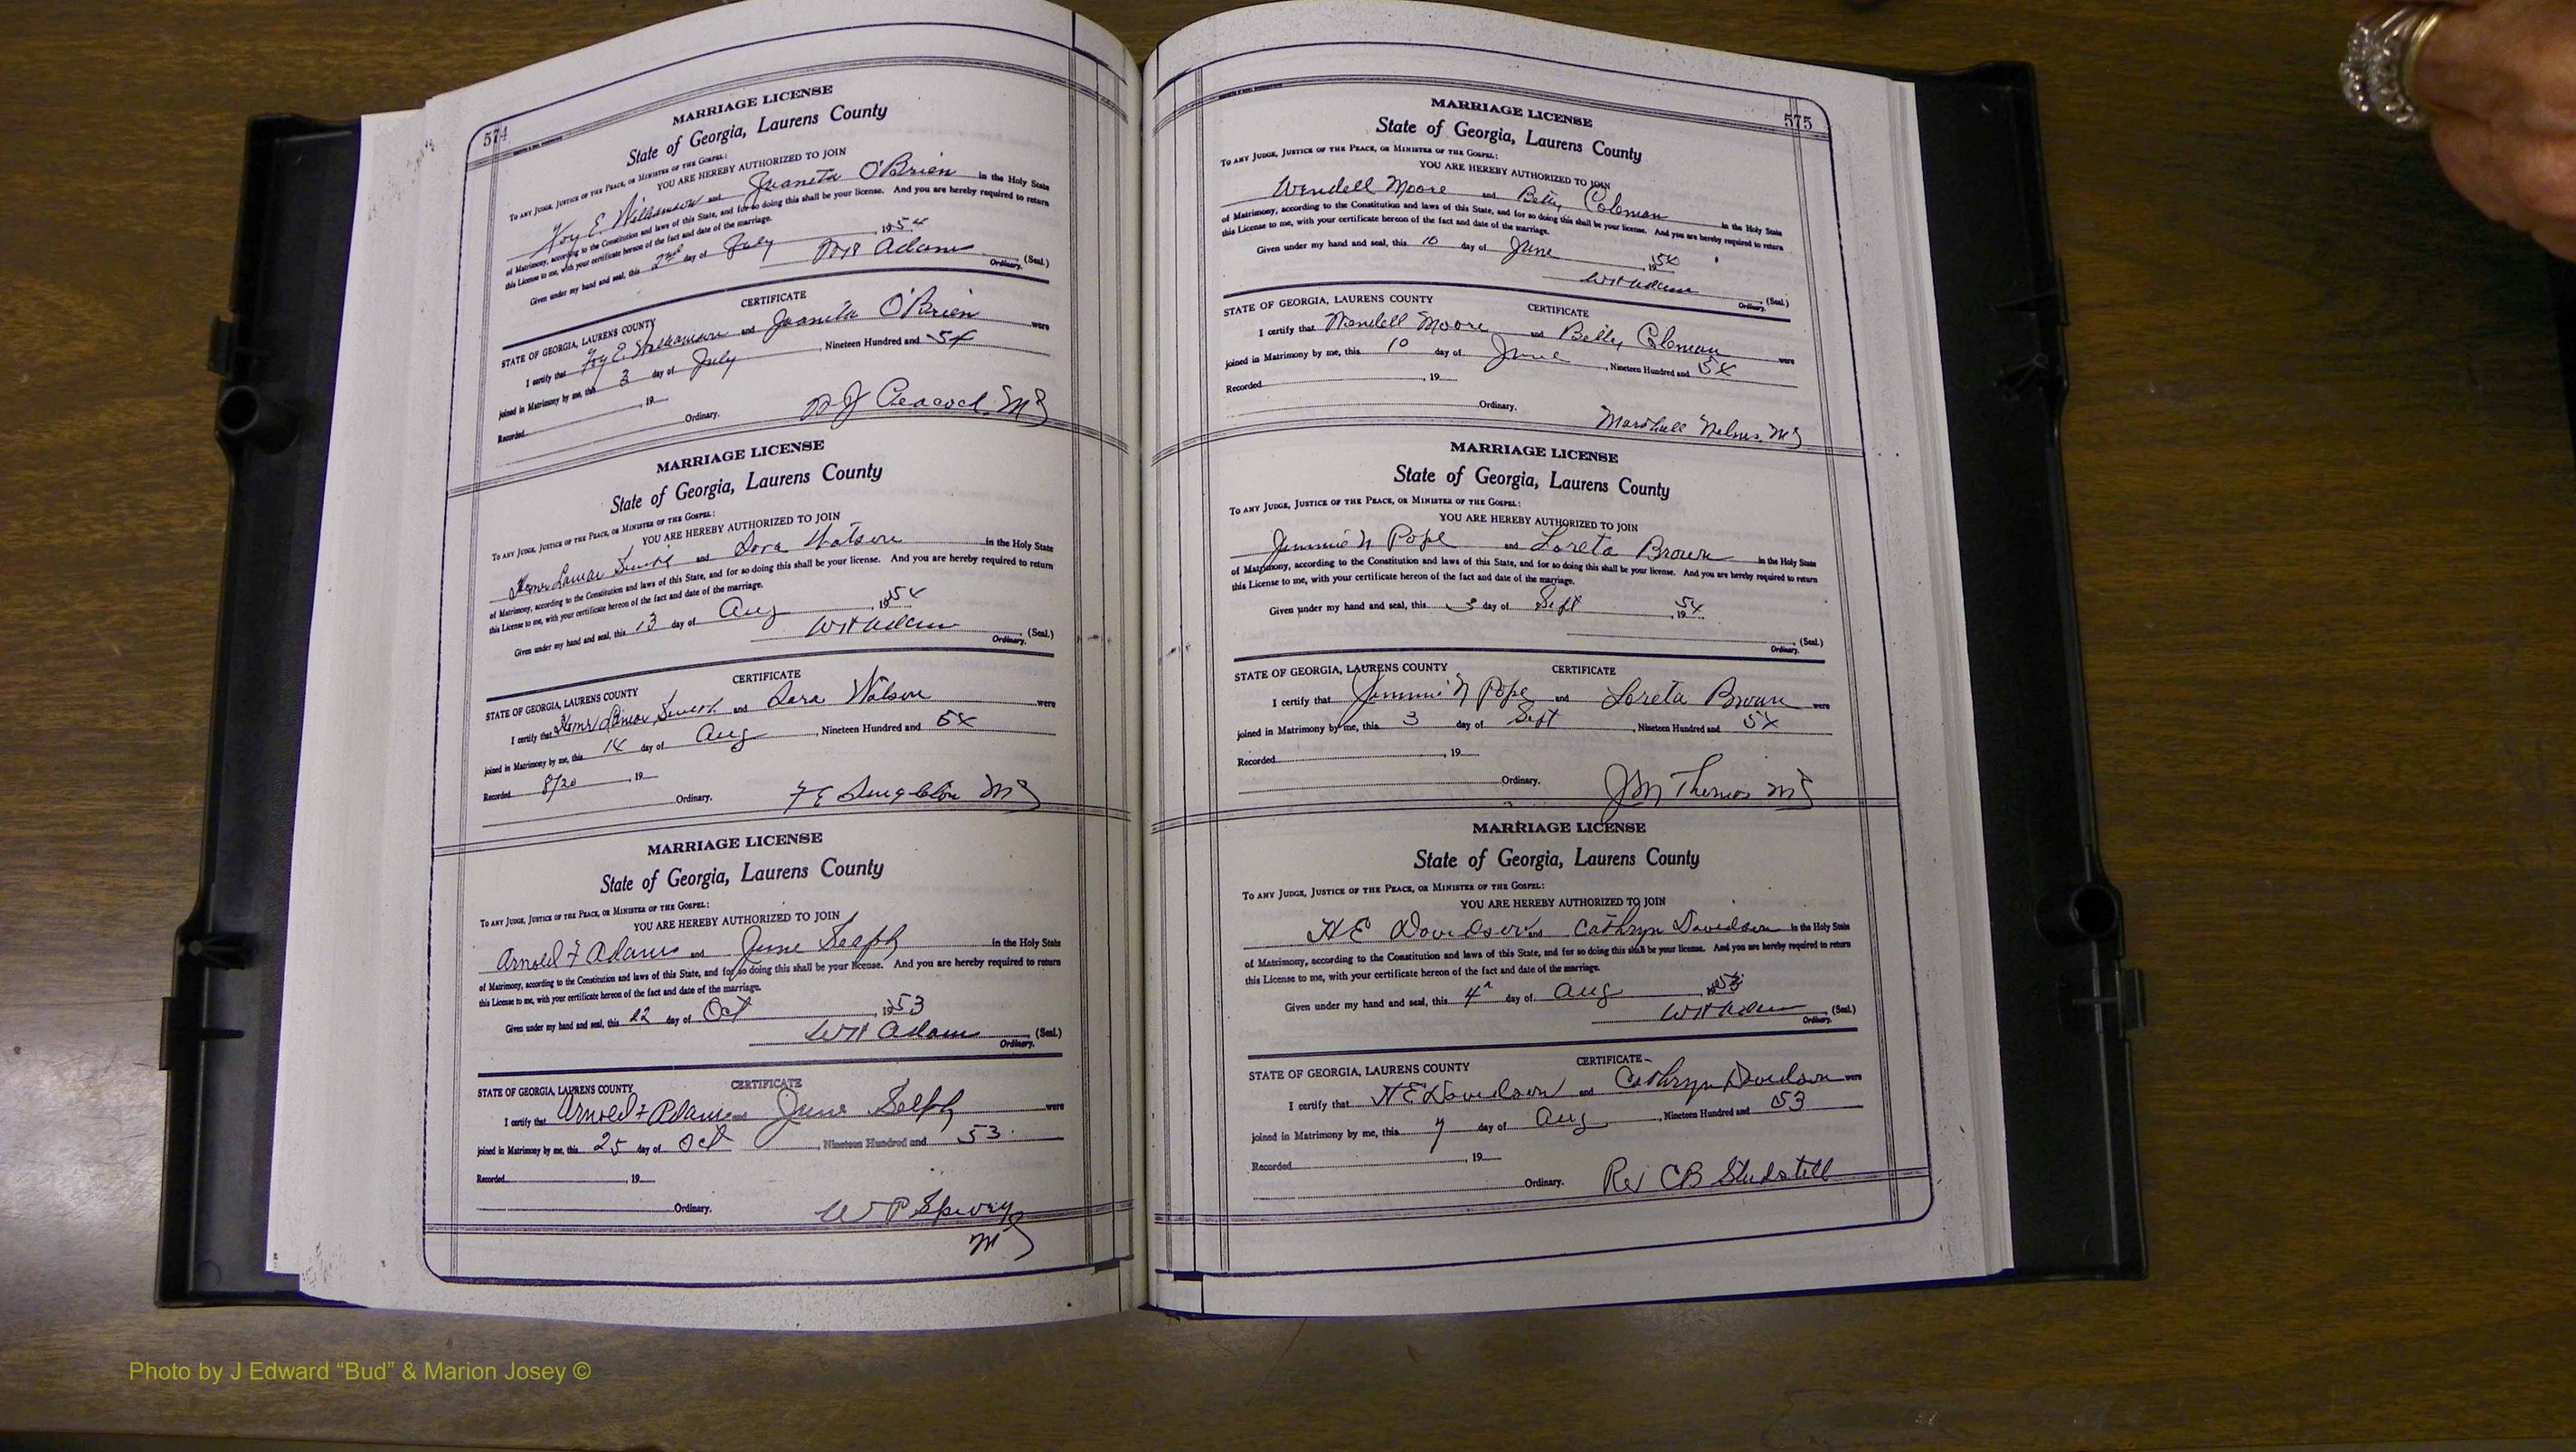 574
MARRIAGE LICENSE
State of Georgia, Laurens County
To any Judge, Justice of the Peace, or Minister of the Gospel:
YOU ARE HEREBY AUTHORIZED TO JOIN
E. Williamson and Juanita O'Brien in the Holy State
of Matrimony, according to the Constitution and laws of this State, and for so doing this shall be your license. And you are hereby required to return
this License to me, with your certificate hereon of the fact and date of the marriage.
Given under my hand and seal, this 2nd day of July, 1954
WH Adams (Seal.)
Ordinary.
CERTIFICATE
STATE OF GEORGIA, LAURENS COUNTY
I certify that E. Williamson and Juanita O'Brien were
joined in Matrimony by me, this 3 day of July, Nineteen Hundred and 54
Recorded, 19
Ordinary. Peacock, MG
MARRIAGE LICENSE
State of Georgia, Laurens County
To any Judge, Justice of the Peace, or Minister of the Gospel:
YOU ARE HEREBY AUTHORIZED TO JOIN
Lamar Smith and Watson in the Holy State
of Matrimony, according to the Constitution and laws of this State, and for so doing this shall be your license. And you are hereby required to return
this License to me, with your certificate hereon of the fact and date of the marriage.
Given under my hand and seal, this 13 day of Aug, 1954
WH Adams (Seal.)
Ordinary.
CERTIFICATE
STATE OF GEORGIA, LAURENS COUNTY
I certify that Lamar Smith and Watson were
joined in Matrimony by me, this 14 day of Aug, Nineteen Hundred and 54
Recorded 8/20, 19
Ordinary. Singleton MG
MARRIAGE LICENSE
State of Georgia, Laurens County
To any Judge, Justice of the Peace, or Minister of the Gospel:
YOU ARE HEREBY AUTHORIZED TO JOIN
Arnold F Adams and June Selph in the Holy State
of Matrimony, according to the Constitution and laws of this State, and for so doing this shall be your license. And you are hereby required to return
this License to me, with your certificate hereon of the fact and date of the marriage.
Given under my hand and seal, this 22 day of Oct, 1953
WH Adams (Seal.)
Ordinary.
CERTIFICATE
STATE OF GEORGIA, LAURENS COUNTY
I certify that Arnold F Adams and June Selph were
joined in Matrimony by me, this 25 day of Oct, Nineteen Hundred and 53
Recorded, 19
Ordinary. W P Spivey
MG
575
MARRIAGE LICENSE
State of Georgia, Laurens County
To any Judge, Justice of the Peace, or Minister of the Gospel:
YOU ARE HEREBY AUTHORIZED TO JOIN
Wendell Moore and Betty Coleman in the Holy State
of Matrimony, according to the Constitution and laws of this State, and for so doing this shall be your license. And you are hereby required to return
this License to me, with your certificate hereon of the fact and date of the marriage.
Given under my hand and seal, this 10 day of June, 1954
WH Adams (Seal.)
Ordinary.
STATE OF GEORGIA, LAURENS COUNTY CERTIFICATE
I certify that Wendell Moore and Betty Coleman were
joined in Matrimony by me, this 10 day of June, Nineteen Hundred and 54
Recorded, 19
Ordinary.
Marshall Nelms, MG
MARRIAGE LICENSE
State of Georgia, Laurens County
To any Judge, Justice of the Peace, or Minister of the Gospel:
YOU ARE HEREBY AUTHORIZED TO JOIN
Jimmie N Pope and Loreta Brown in the Holy State
of Matrimony, according to the Constitution and laws of this State, and for so doing this shall be your license. And you are hereby required to return
this License to me, with your certificate hereon of the fact and date of the marriage.
Given under my hand and seal, this 3 day of Sept, 1954
(Seal.)
Ordinary.
STATE OF GEORGIA, LAURENS COUNTY CERTIFICATE
I certify that Jimmie N Pope and Loreta Brown were
joined in Matrimony by me, this 3 day of Sept, Nineteen Hundred and 54
Recorded, 19
Ordinary. JM Thomas MG
MARRIAGE LICENSE
State of Georgia, Laurens County
To any Judge, Justice of the Peace, or Minister of the Gospel:
YOU ARE HEREBY AUTHORIZED TO JOIN
H E Davidson and Cathryn Davidson in the Holy State
of Matrimony, according to the Constitution and laws of this State, and for so doing this shall be your license. And you are hereby required to return
this License to me, with your certificate hereon of the fact and date of the marriage.
Given under my hand and seal, this 4 day of Aug, 1953
WH Adams (Seal.)
Ordinary.
CERTIFICATE
STATE OF GEORGIA, LAURENS COUNTY
I certify that H E Davidson and Cathryn Davidson were
joined in Matrimony by me, this 7 day of Aug, Nineteen Hundred and 53
Recorded, 19
Ordinary. Rev CB Studstill
Photo by J Edward “Bud” & Marion Josey ©